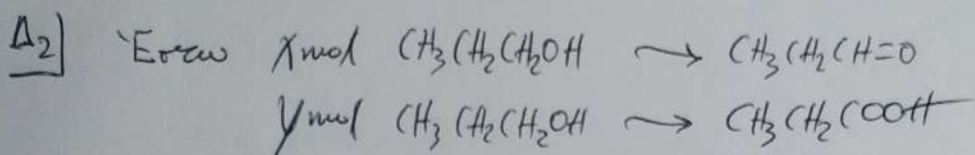 Δ2] Έστω Xmol CH3CH2CH2OH → CH3CH2CH=O
Ymol CH3CH2CH2OH → CH3CH2COOH